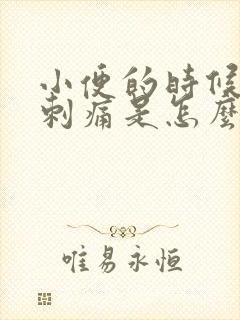 小便的時候
刺痛是怎麼
唯易永恒